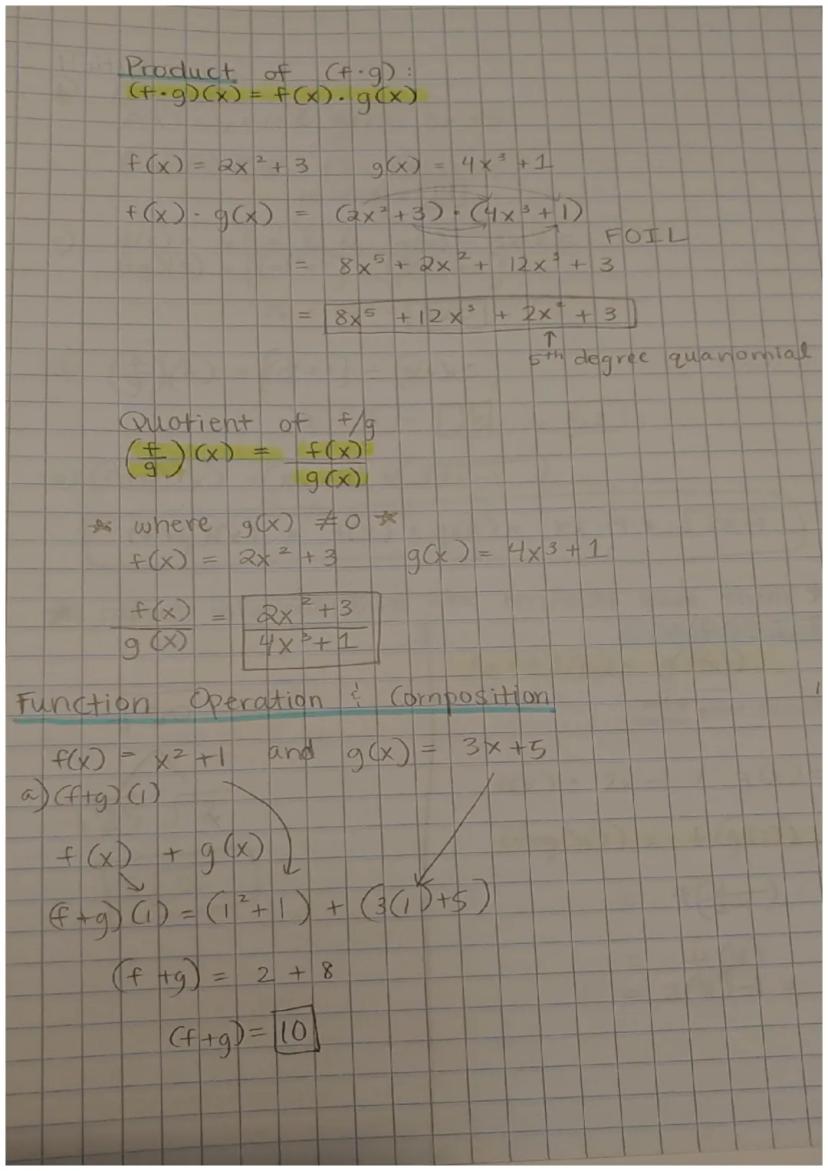 Product of (f·g):
(f·g)(x) = f(x)·g(x)
f(x) = 2x² + 3 g(x) = 4x³ + 1
f(x) · g(x) = (2x² + 3) · (4x³ + 1)
FOIL
= 8x⁵ + 2x² + 12x³ + 3
= 8x⁵ + 12x³ + 2x² + 3
↑
5th degree quanomial
Quotient of f/g
(f/g)(x) = f(x)/g(x)
☆ where g(x) ≠ 0 ☆
f(x) = 2x² + 3 g(x) = 4x³ + 1
f(x)/g(x) = 2x² + 3/4x³ + 1
Function Operation & Composition
f(x) = x² + 1 and g(x) = 3x + 5
a) (f+g)(1)
f(x) + g(x)
(f+g)(1) = (1² + 1) + (3(1) + 5)
(f+g) = 2 + 8
(f+g) = 10